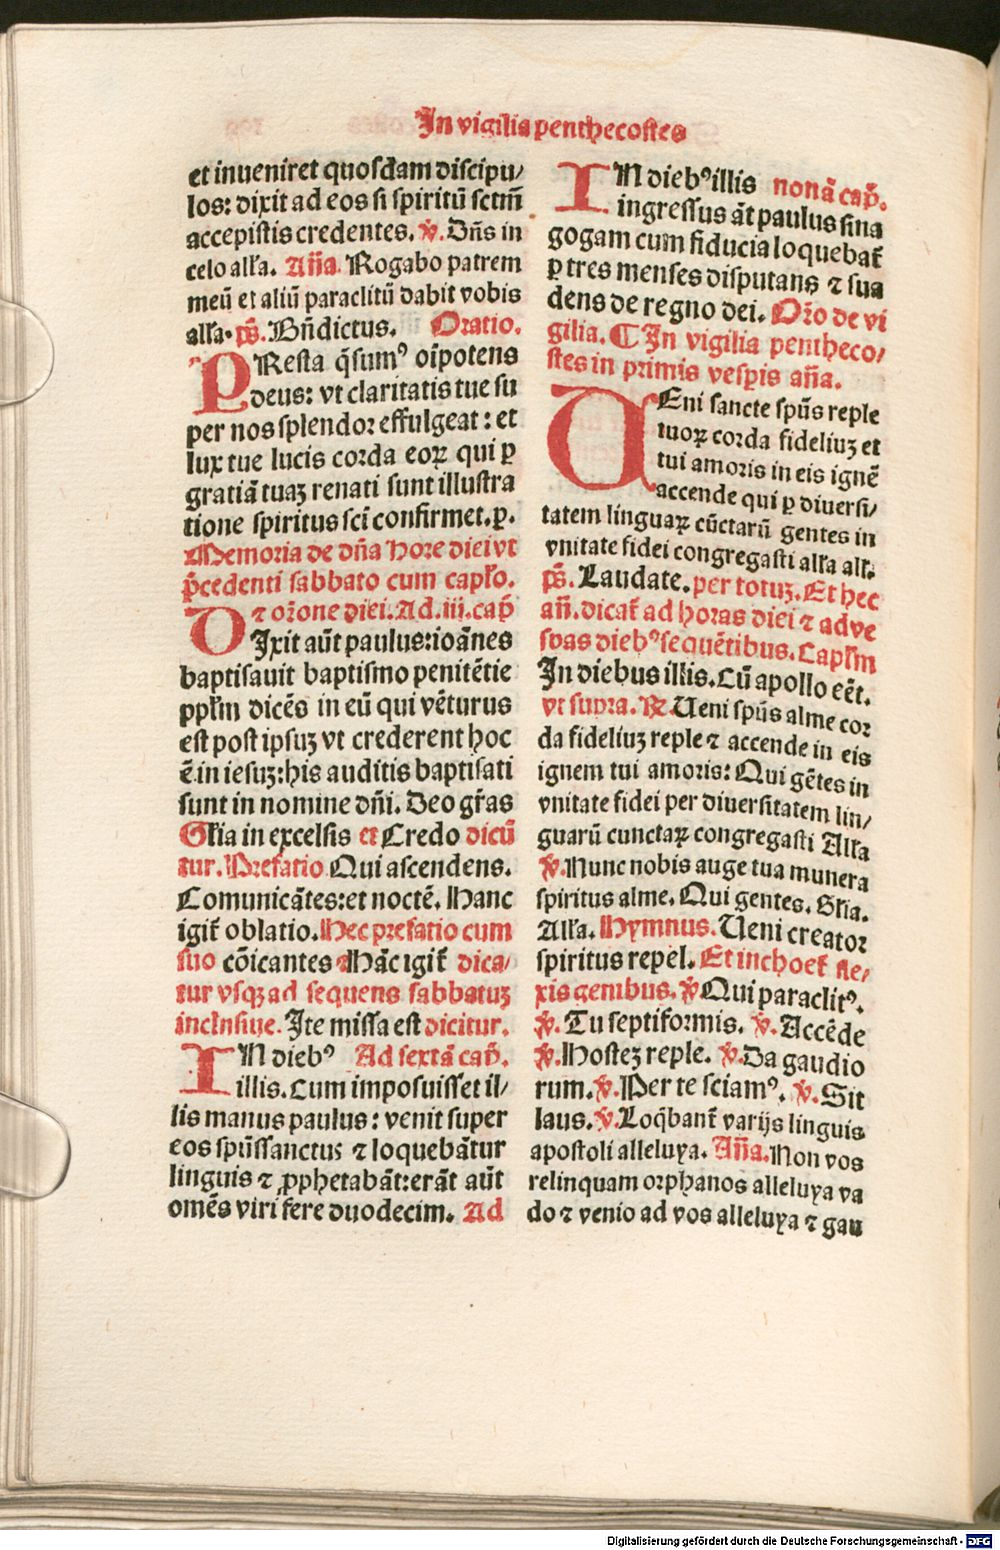 In vigilia penthecostes
et inueniret quosdam discipu/
los: dixit ad eos si spiritū sctm̄
accepistis credentes. ꝟ. Dn̄s in
celo all'a. Añ̃a. Rogabo patrem
meū et aliū paraclitū dabit vobis
all'a. ps̄. Bn̄dictus. Oratio.
PResta q̄sumꝰ oīpotens
deus: vt claritatis tue su
per nos splendor effulgeat: et
lux tue lucis corda eoꝝ qui ꝑ
gratiā tuaꝫ renati sunt illustra
tione spiritus scī confirmet. ꝑ.
Memoria de dn̄a hore diei vt
p̄cedenti sabbato cum capl'o.
et orōne diei. Ad .iii. cap̄
DIxit aūt paulus: ioānes
baptisauit baptismo penitētie
ppl'm dicēs in eū qui vēturus
est post ipsuꝫ vt crederent hoc
ē in iesuꝫ: his auditis baptisati
sunt in nomine dn̄i. Deo gr̄as
Gl'ia in excelsis et Credo dicū
tur. Prefatio Qui ascendens.
Comunicātes: et noctē. Hanc
igit̄ oblatio. Hec prefatio cum
suo cōicantes ⁊ Hāc igit̄ dica/
tur vsqꝫ ad sequens sabbatuꝫ
inclusiue. Ite missa est dicitur.
IN diebꝰ Ad sextā cap̄.
illis. Cum imposuisset il/
lis manus paulus: venit super
eos spūssanctus ⁊ loquebātur
linguis ⁊ ꝓphetabāt: erāt aūt
omēs viri fere duodecim. Ad
IN diebꝰ illis nonā cap̄.
ingressus āt paulus sina
gogam cum fiducia loquebat̄
ꝑ tres menses disputans ⁊ sua
dens de regno dei. Or̄o de vi
gilia. ¶ In vigilia pentheco/
stes in primis vesp̄is añ̃a.
UEni sancte spūs reple
tuoꝝ corda fideliuꝫ et
tui amoris in eis ignē
accende qui ꝑ diuersi/
tatem linguaꝝ cūctarū gentes in
vnitate fidei congregasti all'a all'.
ps̄. Laudate. per totuꝫ. Et hec
añ. dicat̄ ad horas diei ⁊ adve
spas diebꝰ sequētibus. Capl'm
In diebus illis. Cū apollo eēt.
vt supra. ℞. Ueni spūs alme cor
da fideliuꝫ reple ⁊ accende in eis
ignem tui amoris: Qui gētes in
vnitate fidei per diuersitatem lin/
guarū cunctaꝝ congregasti All'a
ꝟ. Nunc nobis auge tua munera
spiritus alme. Qui gentes. Gl'ia.
All'a. Hymnus. Ueni creator
spiritus repel. Et inchoet̄ fle/
xis genibus. ꝟ Qui paraclitꝰ.
ꝟ. Tu septiformis. ꝟ. Accēde
ꝟ. Hosteꝫ reple. ꝟ. Da gaudio
rum. ꝟ. Per te sciamꝰ. ꝟ. Sit
laus. ꝟ. Loq̄bant̄ varijs linguis
apostoli alleluya. Añ̃a. Non vos
relinquam orphanos alleluya va
do ⁊ venio ad vos alleluya ⁊ gau
Digitalisierung gefördert durch die Deutsche Forschungsgemeinschaft - DFG